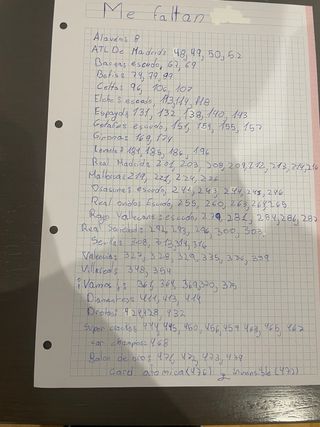 Me faltan
Alaves: 8
ATL De Madrid: 48, 49, 50, 52
Barça: escudo, 67, 69
Betis: 74, 79, 89
Celta: 96, 106, 107
Elche: escudo, 113, 114, 118
Espayol: 131, 132, 138, 140, 143
Getafe: escudo, 151, 154, 155, 157
Girona: 169, 174
Levante: 181, 185, 186, 196
Real Madrid: 201, 203, 208, 209, 212, 213, 214, 216
Mallorca: 219, 221, 224, 226
Osasuna: escudo, 241, 243, 244, 245, 246
Real Oviedo: Escudo, 255, 260, 263, 264, 265
Rayo Vallecano: escudo, 279, 281, 284, 286, 287
Real Sociedad: 292, 293, 296, 300, 303
Sevilla: 308, 313, 314, 316
Valencia: 327, 328, 329, 335, 336, 339
Villareal: 348, 354
¡Vamos!: 361, 364, 369, 370, 375
Diamantes: 411, 413, 414
Debut: 428, 432
Super cracks: 444, 445, 450, 456, 459, 463, 465, 467
car champions: 468
Balon de oro: 471, 472, 473, 474
card atomica (476) y invensible (477)